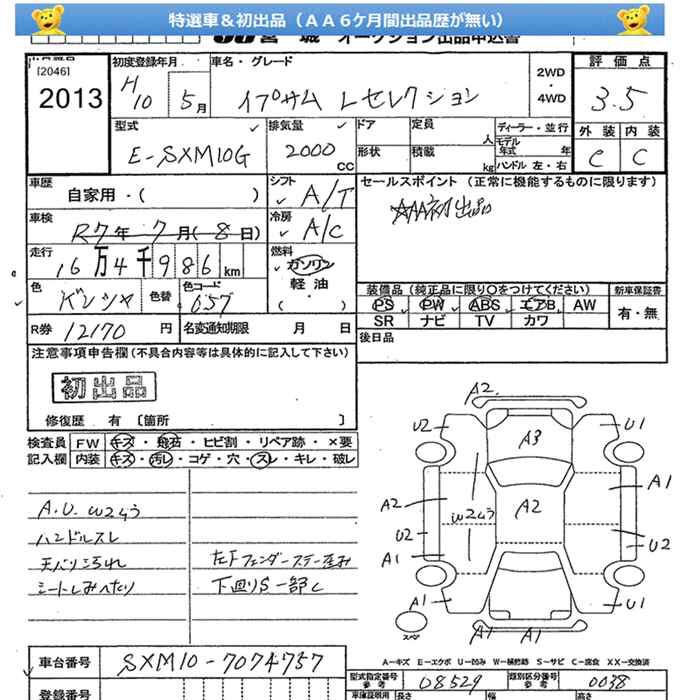 特選車&初出品(AA6ケ月間出品歴が無い)
宮 城 オークション出品申込書
[2046]
2013
初度登録年月
H10 5月
車名・グレード
イプサム Lセレクション
2WD
・
4WD
評価点
3.5
型式
E-SXM10G
排気量
2000 CC
ドア
定員
人
形状
積載
kg
ディーラー・並行
モデル年式 年
ハンドル 左・右
外装 内装
C C
車歴
自家用・( )
シフト
A/T
セールスポイント (正常に機能するものに限ります)
AA初出品
車検
R7年7月(8日)
冷房
A/C
走行
16万4千986km
燃料
ガソリン
軽油
( )
色
色替
色コード
057
装備品(純正品に限り〇をつけてください)
新車保証書
PS PW ABS エアB AW
有・無
SR ナビ TV カワ
R券 12170 円
名変通知期限 月 日
後日品
注意事項申告欄(不具合内容等は具体的に記入して下さい)
初出品
修復歴 有 [箇所 ]
検査員記入欄
FW キズ・飛石・ヒビ割・リペア跡・×要
内装 キズ・汚レ・コゲ・穴・スレ・キレ・破レ
A.U. W2こう
ハンドルスレ
天バリよごれ
シートしみへたり
左Fフェンダーステー歪み
下廻りS一部C
A2
U2
U1
A3
A1
A2
A2
W2こう
U2
U2
A1
A1
U1
スペア
A1 A1
A-キズ E-エクボ U-凹み W-補修跡 S-サビ C-腐食 XX-交換済
車台番号
SXM10-7074757
型式指定番号 参考
08529
類別区分番号 参考
0038
登録番号
車庫証明用
長さ
幅
高さ